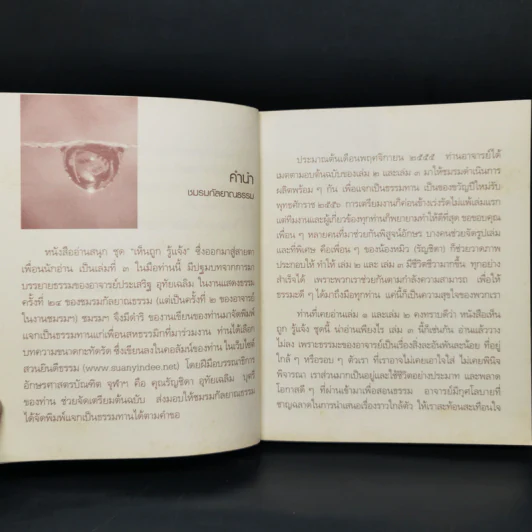 คำนำ
ชมรมกัลยาณธรรม
หนังสืออ่านสนุก ชุด "เห็นถูก รู้แจ้ง" ซึ่งออกมาสู่สายตา
เพื่อนนักอ่าน เป็นเล่มที่ ๓ ในมือท่านนี้ มีปฐมบทจากการมา
บรรยายธรรมของอาจารย์ประเสริฐ อุทัยเฉลิม ในงานแสดงธรรม
ครั้งที่ ๒๔ ของชมรมกัลยาณธรรม (แต่เป็นครั้งที่ ๒ ของอาจารย์
ในงานชมรมฯ) ชมรมฯ จึงมีดำริ ของานเขียนของท่านมาจัดพิมพ์
แจกเป็นธรรมทานแก่เพื่อนสหธรรมิกที่มาร่วมงาน ท่านได้เลือก
บทความขนาดกะทัดรัด ซึ่งเขียนลงในคอลัมน์ของท่าน ในเว็บไซต์
สวนยินดีธรรม (www.suanyindee.com) โดยฝีมือบรรณาธิการ
อักษรศาสตรบัณฑิต จุฬาฯ คือ คุณรัญชิดา อุทัยเฉลิม บุตรี
ของท่าน ช่วยจัดเตรียมต้นฉบับ ส่งมอบให้ชมรมกัลยาณธรรม
ได้จัดพิมพ์แจกเป็นธรรมทานได้ตามคำขอ
ประมาณต้นเดือนพฤศจิกายน ๒๕๕๕ ท่านอาจารย์ได้
เมตตามอบต้นฉบับของเล่ม ๒ และเล่ม ๓ มาให้ชมรมดำเนินการ
ผลิตพร้อม ๆ กัน เพื่อแจกเป็นธรรมทาน เป็นของขวัญปีใหม่รับ
พุทธศักราช ๒๕๕๖ การเตรียมงานก็ค่อนข้างเร่งรัดไม่แพ้เล่มแรก
แต่ทีมงานและผู้เกี่ยวข้องทุกท่านก็พยายามทำให้ดีที่สุด ขอขอบคุณ
เพื่อน ๆ หลายคนที่มาช่วยกันพิสูจน์อักษร บางคนช่วยจัดรูปเล่ม
และที่พิเศษ คือเพื่อน ๆ ของน้องหมิว (รัญชิดา) ก็ช่วยวาดภาพ
ประกอบให้ ทำให้ เล่ม ๒ และ เล่ม ๓ มีชีวิตชีวามากขึ้น ทุกอย่าง
สำเร็จได้ เพราะพวกเราช่วยกันตามกำลังความสามารถ เพื่อให้
ธรรมะดี ๆ ได้มาถึงมือทุกท่าน แค่นี้ก็เป็นความสุขใจของพวกเรา
ท่านที่เคยอ่านเล่ม ๑ และเล่ม ๒ คงทราบดีว่า หนังสือเห็น
ถูก รู้แจ้ง ชุดนี้ น่าอ่านเพียงไร เล่ม ๓ นี้ก็เช่นกัน อ่านแล้ววาง
ไม่ลง เพราะธรรมะของอาจารย์เป็นเรื่องสิ่งละอันพันละน้อย ที่อยู่
ใกล้ ๆ หรือรอบ ๆ ตัวเรา ที่เราอาจไม่เคยเอาใจใส่ ไม่เคยพินิจ
พิจารณา เราส่วนมากเป็นอยู่และใช้ชีวิตอย่างประมาท และพลาด
โอกาสดี ๆ ที่ผ่านเข้ามาเพื่อสอนธรรม อาจารย์มีกุศโลบายที่
ชาญฉลาดในการนำเสนอเรื่องราวใกล้ตัว ให้เราสะท้อนสะเทือนใจ